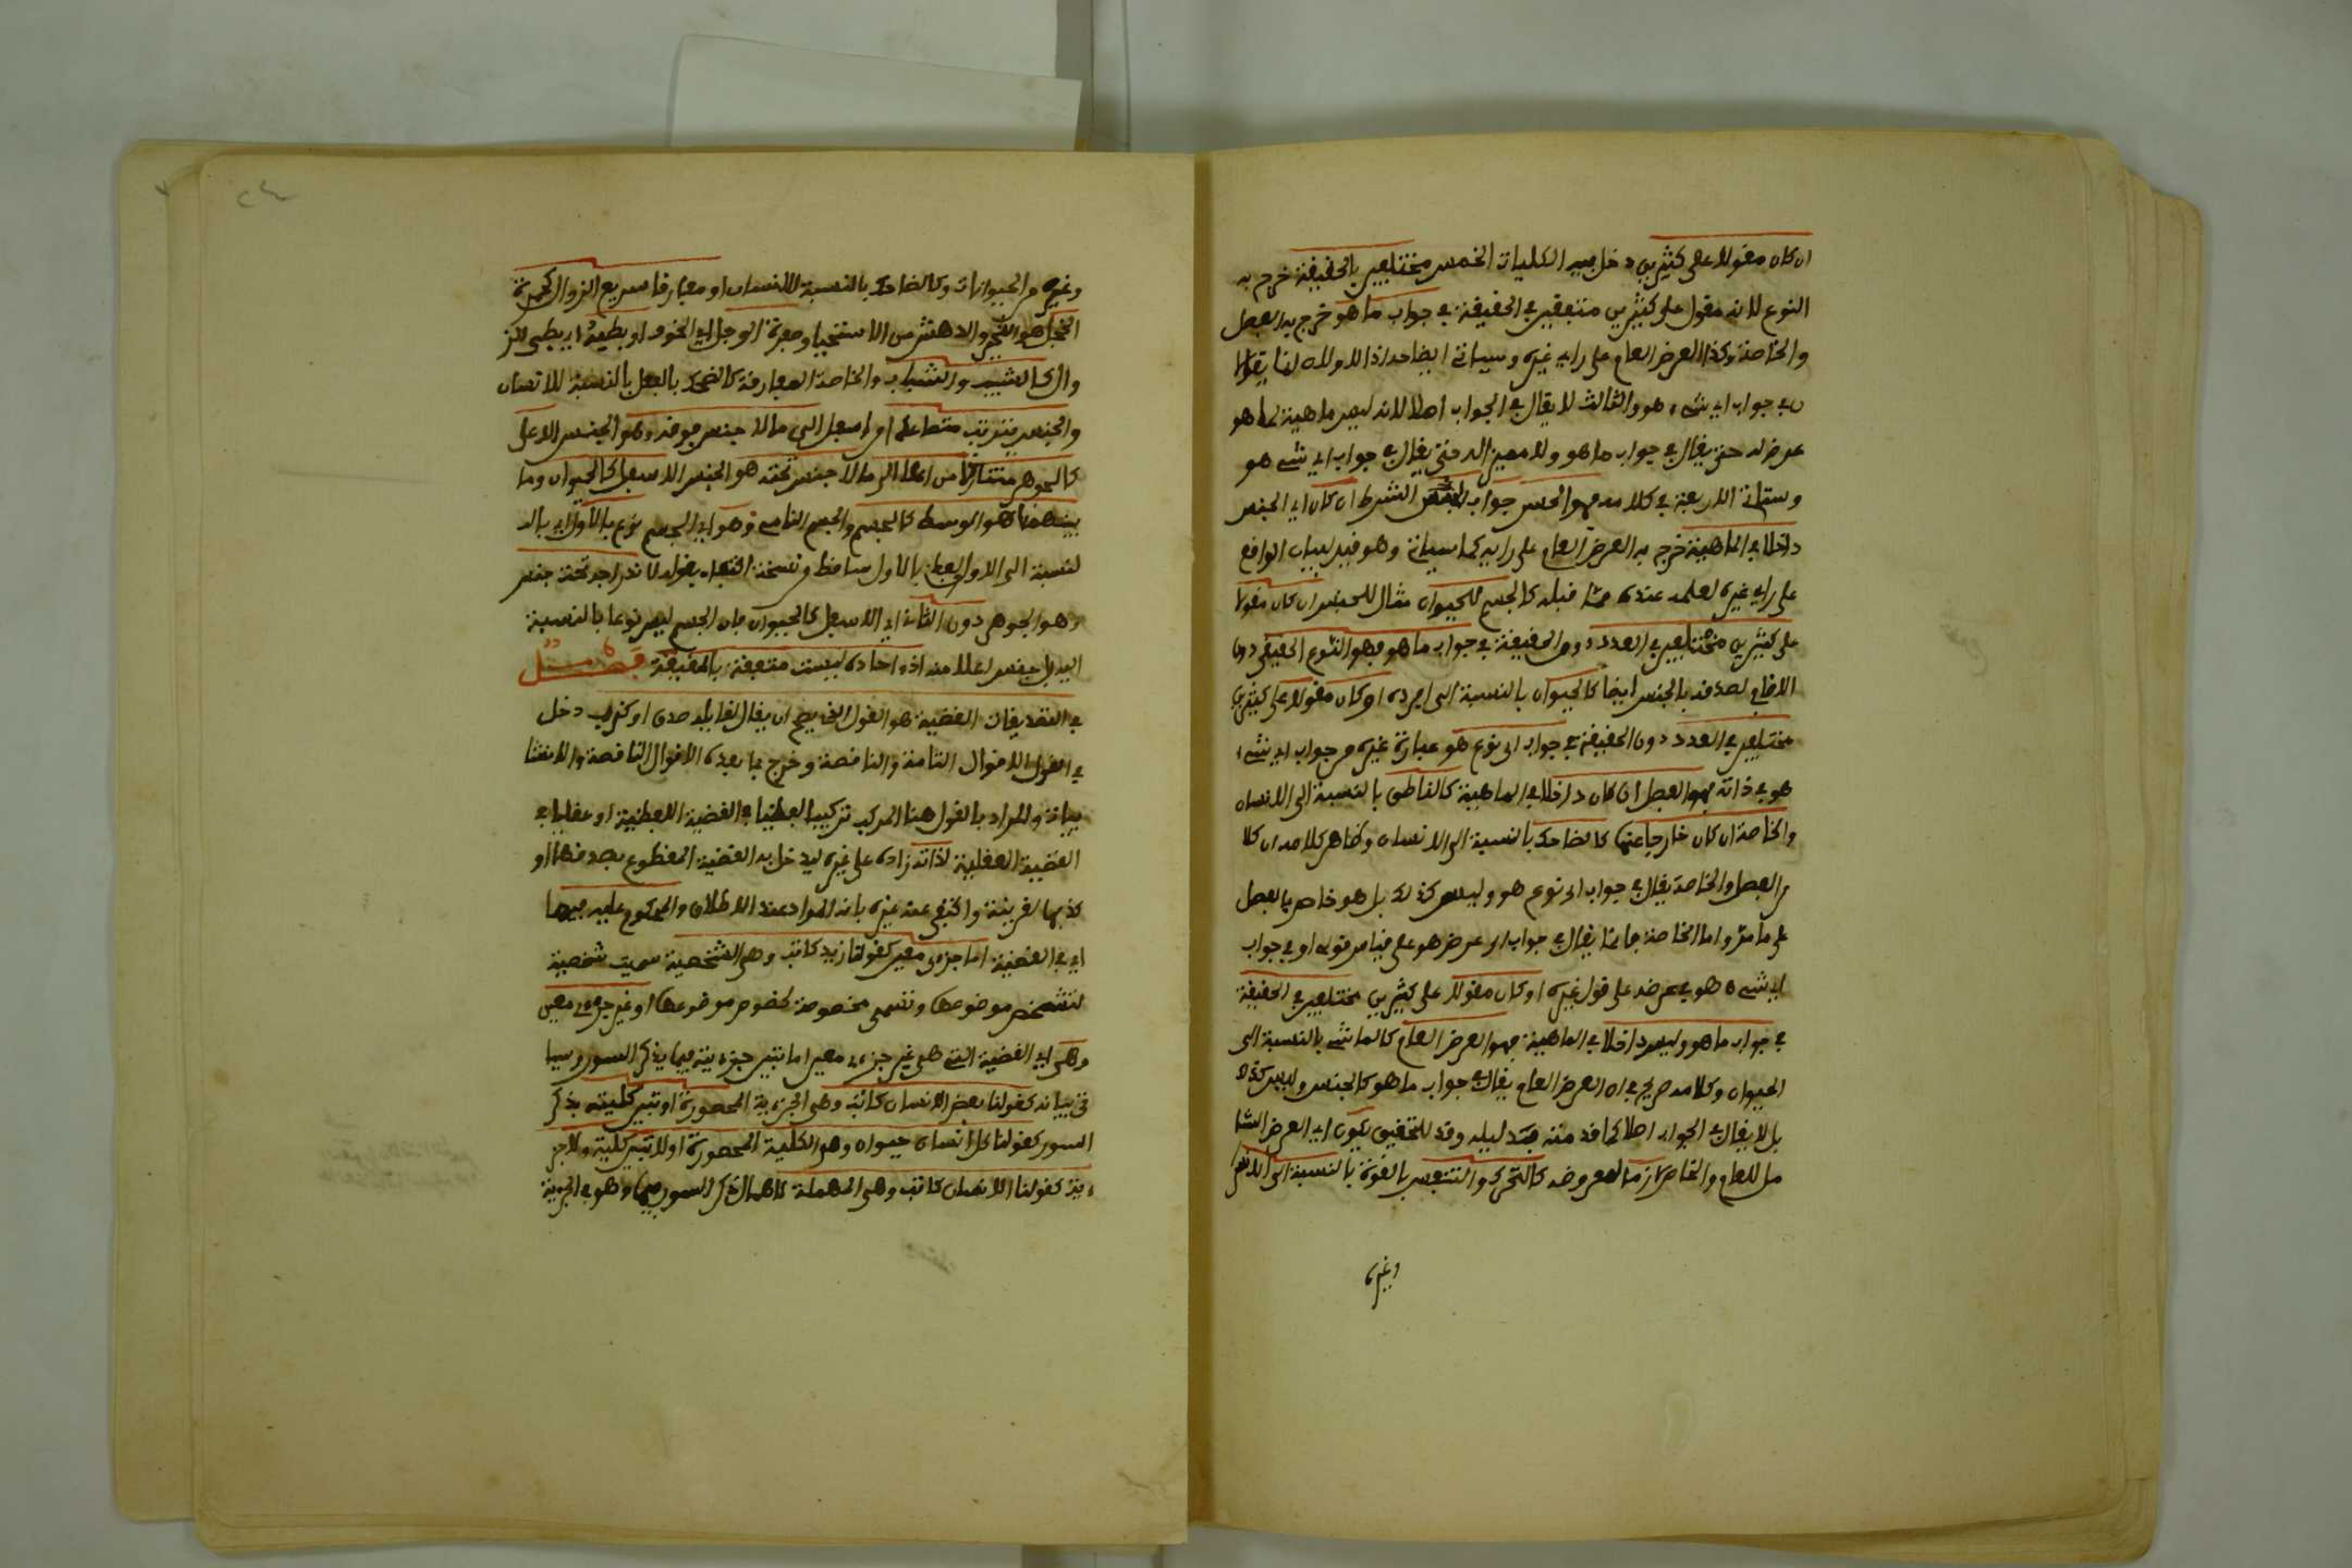 ان كان مقولا على كثيرين دخل فيه الكليات الخمس مختلفين بالحقيقة خرج به
النوع لانه مقول على كثيرين متفقين في الحقيقة في جواب ما هو خرج به الفصل
والخاصة وكذا العرض العام على راي غيره وسياتي ايضاحه اذ الاولان انما يقالا
ن في جواب اي شيء هو والثالث لا يقال في الجواب اصلا لانه ليس ماهية لما هو
عرض له حتى يقال في جواب ما هو ولا مميز له حتى يقال في جواب اي شيء هو
وستاتي الاربعة في كلامه فهو الجنس جواب الشرط ان كان اي الجنس
داخلا في الماهية خرج به العرض العام على رايه كما سياتي وهو قيد لبيان الواقع
على راي غيره لعلمه عنده مما قبله كالجسم للحيوان مثال للجنس ان كان مقولا
على كثيرين مختلفين في العدد دون الحقيقة في جواب ما هو فهو النوع الحقيقي دون
الاضافي لصدقه بالجنس ايضا كالحيوان بالنسبة الى افراده او كان مقولا على كثيرين
مختلفين في العدد دون الحقيقة في جواب اي نوع هو عبارة غيره في جواب اي شيء
هو في ذاته فهو الفصل ان كان داخلا في الماهية كالناطق بالنسبة الى الانسان
والخاصة ان كان خارجا عنها كالضاحك بالنسبة الى الانسان وظاهر كلامه ان كلا
من الفصل والخاصة يقال في جواب اي نوع هو وليس كذلك بل هو خاص بالفصل
على ما مر واما الخاصة فانما يقال في جواب اي عرض هو على قياس قوله او في جواب
اي شيء هو في عرضه على قول غيره او كان مقولا على كثيرين مختلفين في الحقيقة
في جواب ما هو وليس داخلا في الماهية فهو العرض العام كالماشي بالنسبة الى
الحيوان وكلامه صريح في ان العرض العام يقال في جواب ما هو كالجنس وليس كذلك
بل لا يقال في الجواب اصلا كما قدمته بدليله وقد للتحقيق يكون اي العرض الشا
مل للعام والخاص لازما لمعروضه كالتحرك والتنفس بالقوة بالنسبة الى الانسان
وغيره
وغيره من الحيوانات وكالضاحك بالنسبة للانسان او مفارقا سريع الزوال كحمرة
الخجل هو التحير والدهش من الاستحيا وصفرة الوجل اي الخوف او بطيئه اي بطيء الز
وال كالشيب والشباب والخاصة المفارقة كالضحك بالفعل بالنسبة للانسان
والجنس يترتب متصاعدا من اسفل الى ما لا جنس فوقه وهو الجنس الاعلى
كالجوهر متنازلا من اعلا الى ما لا جنس تحته هو الجنس الاسفل كالحيوان وما
بينهما هو الوسط كالجسم والجسم النامي وهو اي الجسم نوع بالاول اي بالـ
لنسبة الى الاول ولفظ بالاول ساقط من نسخة اكتفاء بقوله لاندراجه تحت جنس
وهو الجوهر دون الثاني اي الاسفل كالحيوان فان الجسم ليس نوعا بالنسبة
اليه بل جنس اعلا منه اذ احاده ليست متفقة بالحقيقة فصل
في التصديقات القضية هو القول الذي يصح ان يقال لقايله صدق او كذب دخل
في القول الاقوال التامة والناقصة وخرج بما بعده الاقوال الناقصة والانشا
ييات والمراد بالقول هنا المركب تركيبا لفظيا في القضية اللفظية او عقليا في
القضية العقلية لذاته زاده على غيره ليدخل به القضية المقطوع بصدقها او
كذبها لقرينة واكتفى عنه غيره بانه المراد عند الاطلاق والمحكوم عليه فيها
اي في القضية اما جزءي معين كقولنا زيد كاتب وهي الشخصية سميت شخصية
لتشخص موضوعها وتسمى مخصوصة لخصوص موضوعها او غير جزءي معين
وهي اي القضية التي هي غير جزءي معين اما تبين جزءيته فيها بذكر السور وسيا
تي بيانه كقولنا بعض الانسان كاتب وهي الجزءية المحصورة او تبين كليته بذكر
السور كقولنا كل انسان حيوان وهو الكلية المحصورة او لا تبين كلية ولا جز
ءية كقولنا الانسان كاتب وهي المهملة لاهمال ذكر السور فيها وهو في الجزءية